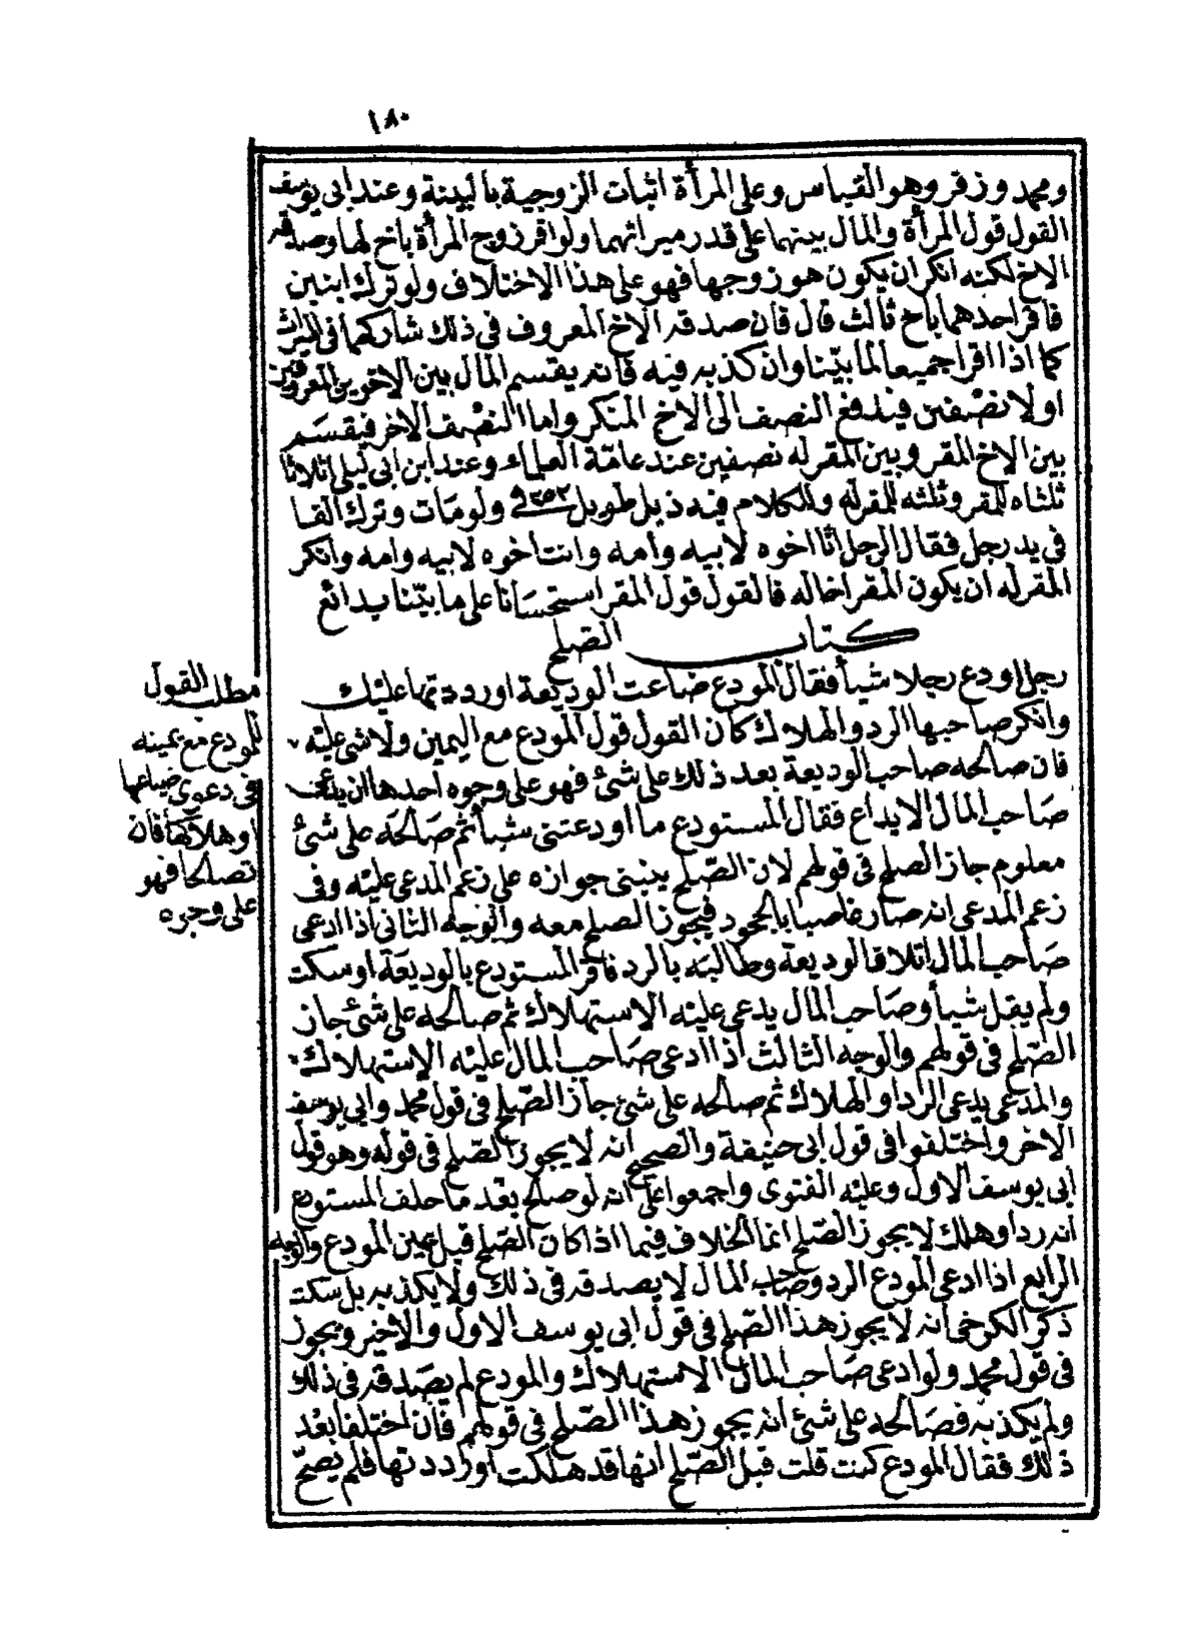 ١٨٠
ومحمد وزفر وهو القياس وعلى المرأة اثبات الزوجية بالبينة وعند ابى يوسف
القول قول المرأة والمال بينهما على قدر ميراثهما ولو اقر زوج المرأة باخ لها وصدقه
الاخ لكنه انكر ان يكون هو زوجها فهو على هذا الاختلاف ولو ترك ابنين
فاقر احدهما باخ ثالث قال فان صدقه الاخ المعروف فى ذلك شاركهما فى الميراث
كما اذا اقرا جميعا لما بيّنا وان كذبه فيه فانه يقتسم المال بين الاخوين المعروفين
اولا نصفين فيدفع النصف الى الاخ المنكر واما النصف الاخر فيقسم
بين الاخ المقر وبين المقر له نصفين عند عامّة العلماء وعند ابن ابى ليلى اثلاثا
ثلثاه للمقر وثلثه للمقر له والكلام فيه ذيل طويل ٢٥٢ ولو مات وترك الفا
فى يد رجل فقال الرجل انا اخوه لابيه وامه وانت اخوه لابيه وامه وانكر
المقر له ان يكون المقر اخا له فالقول قول المقر استحسانا على ما بيّنا بدائع
كتاب الصّلح
رجل اودع رجلا شيأ فقال المودع ضاعت الوديعة او رددتها عليك
وانكر صاحبها الرد والهلاك كان القول قول المودع مع اليمين ولا شئ عليه
فان صالحه صاحب الوديعة بعد ذلك على شئ فهو على وجوه احدها ان يدعى
صاحب المال الايداع فقال المستودع ما اودعتنى شيأ ثم صالحه على شئ
معلوم جاز الصلح فى قولهم لان الصّلح يبتنى جوازه على زعم المدعى عليه وفى
زعم المدعى انه صار غاصبا بالجحود فيجوز الصلح معه والوجه الثانى اذا ادعى
صاحب المال اتلاف الوديعة وطالبه بالرد فاقر المستودع بالوديعة او سكت
ولم يقل شيأ وصاحب المال يدعى عليه الاستهلاك ثم صالحه على شئ جاز
الصّلح فى قولهم والوجه الثالث اذا ادعى صاحب المال عليه الاستهلاك
والمدعى يدعى الرد او الهلاك ثم صالحه على شئ جاز الصّلح فى قول محمد وابى يوسف
الاخر واختلفوا فى قول ابى حنيفة والصحيح انه لا يجوز الصّلح فى قوله وهو قول
ابى يوسف الاول وعليه الفتوى واجمعوا على انه لو صالح بعد ما حلف المستودع
انه رد او هلك لا يجوز الصّلح انما الخلاف فيما اذا كان الصّلح قبل يمين المودع والوجه
الرابع اذا ادعى المودع الرد وصاحب المال لا يصدقه فى ذلك ولا يكذبه بل سكت
ذكر الكرخى انه لا يجوز هذا الصّلح فى قول ابى يوسف الاول والاخير ويجوز
فى قول محمد ولو ادعى صاحب المال الاستهلاك والمودع لم يصدقه فى ذلك
ولم يكذبه فصالحه على شئ انه يجوز هذا الصّلح فى قولهم فان اختلفا بعد
ذلك فقال المودع كنت قلت قبل الصّلح انها قد هلكت او رددتها فلم يصحّ
مطلب القول
للمودع مع يمينه
فى دعوى ضياعها
او هلاكها فان
تصالحا فهو
على وجوه